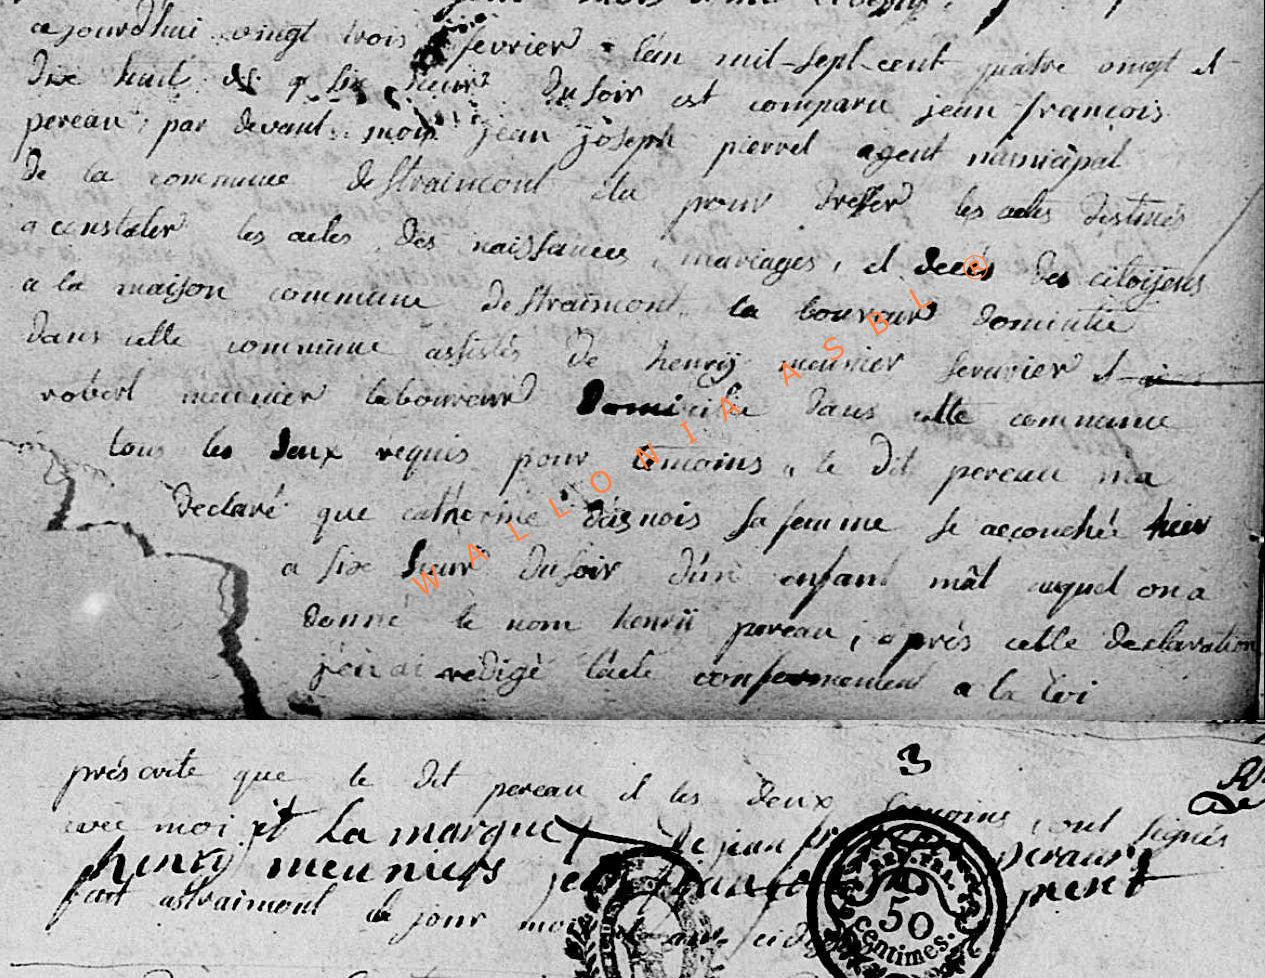 ajourdhui vingt trois fevrier lan mil sept cent quatre vingt et
dix huit six heur du soir est comparu jean françois
pereau par devant moi jean joseph pierret agent municipal
de la commune destraimont elu pour dresser les actes destinés
a constater les actes des naissances, mariages, et decés des citoijens
a la maison commune destraimont labourair domicilie
dans cette commune assistés de henrij meunier serurier et
robert meunier laboureur Domicilie dans cette commune
tous les deux requis pour temoins, le dit pereau ma
declaré que catherine dagnois sa femme se accouché hier
a six heur du soir d'un enfant mâl auquel on a
donné le nom henrii pereau, après cette declaration
j'en ai redigé l'acte conformement a la loi
3
préscrite que le dit pereau et les deux temoins ont signés
avec moi et La marque de jean pereau
henry meuniers jean pierret
fait astraimont le jour moi et an
50
centimes.
WALLONIA ASBL ®